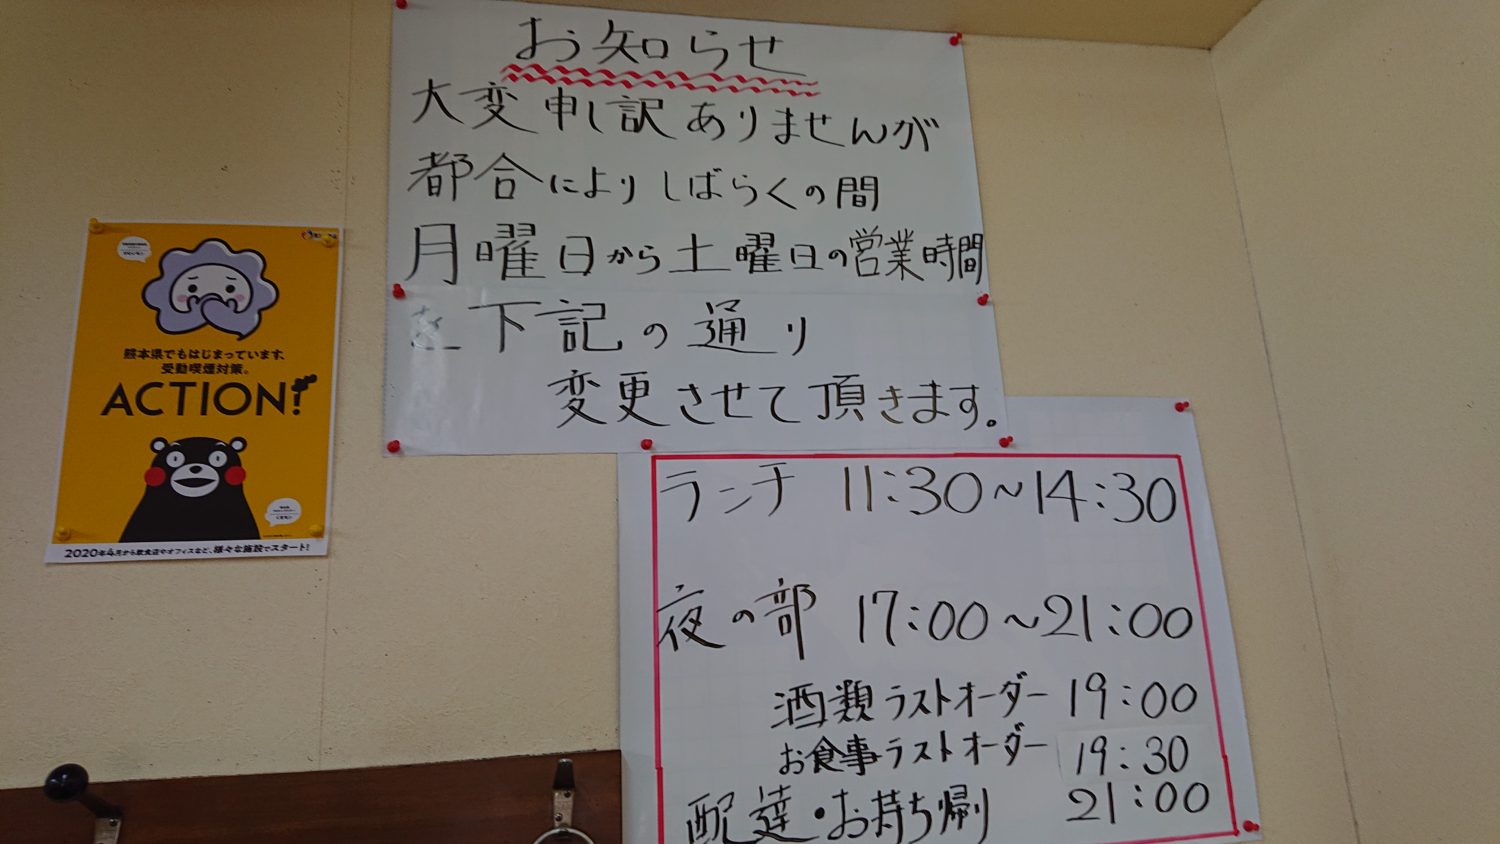 お知らせ
大変申し訳ありませんが
都合によりしばらくの間
月曜日から土曜日の営業時間
を下記の通り
変更させて頂きます。
ランチ 11:30~14:30
夜の部 17:00~21:00
酒類ラストオーダー 19:00
お食事ラストオーダー 19:30
配達・お持ち帰り 21:00
熊本県でもはじまっています、
受動喫煙対策。
ACTION!
2020年4月から飲食店やオフィスなど、様々な施設でスタート!